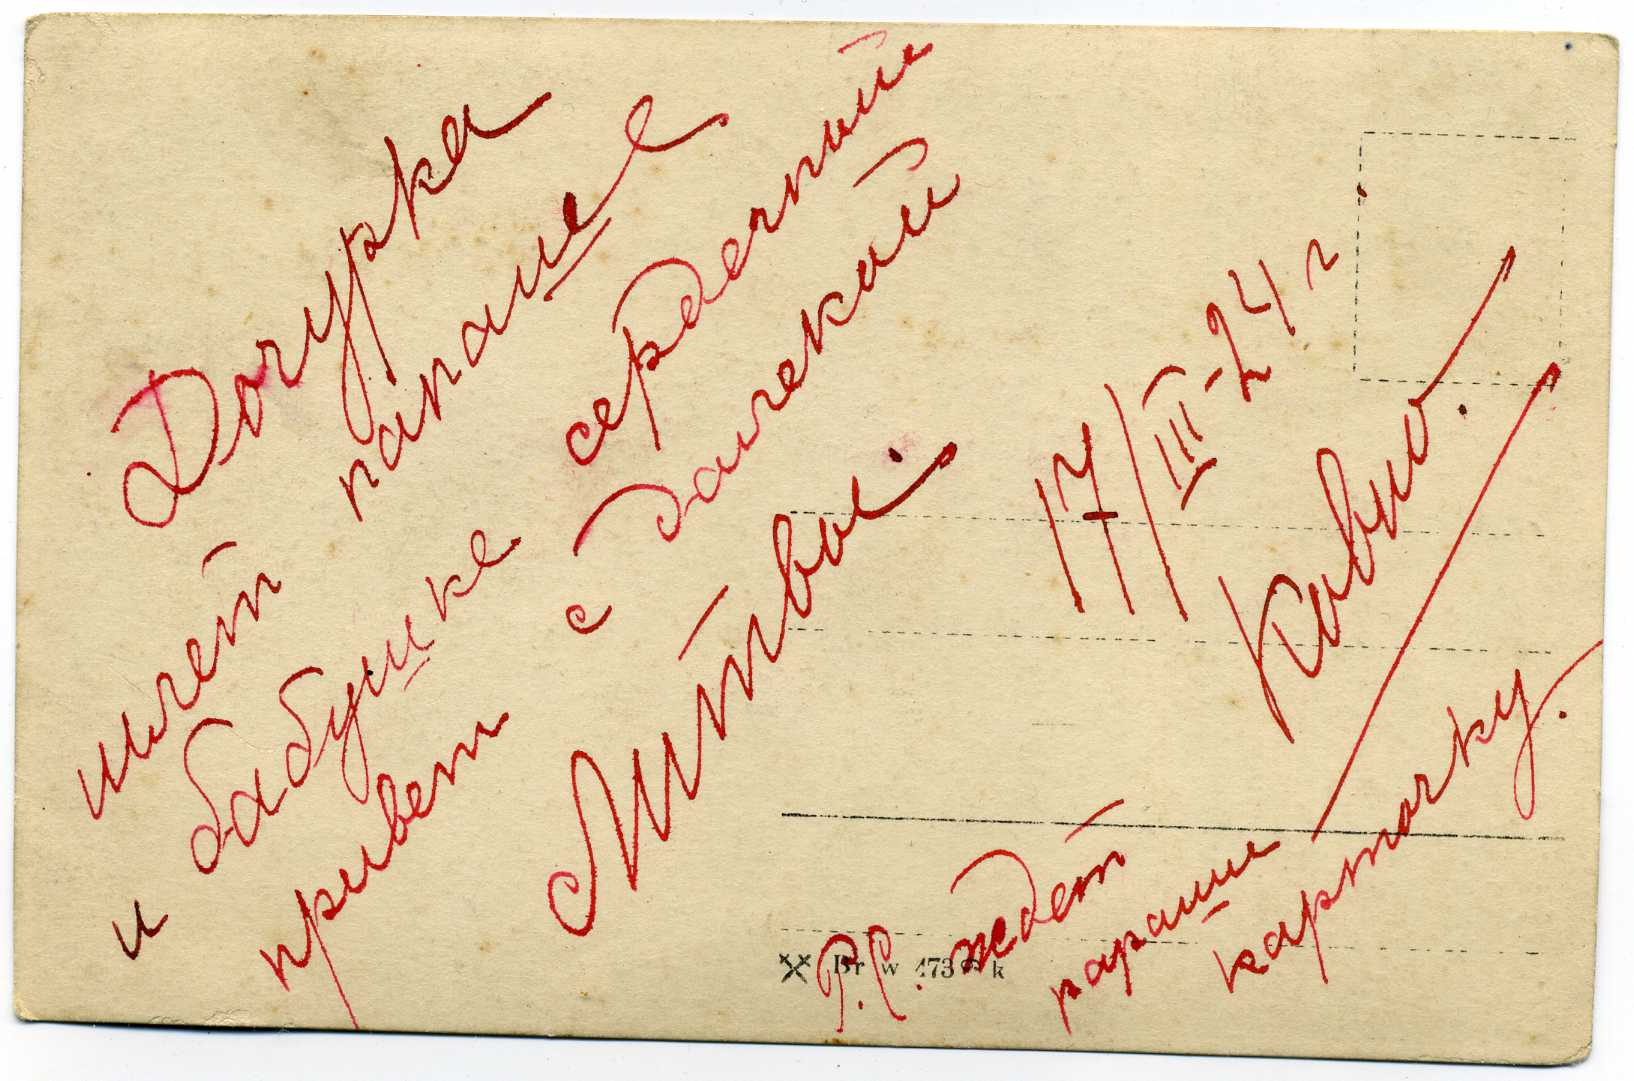 Дочурка
шлет папаше
и бабушке сердечный
привет с далекой
Литвы.
17/III-24 г
Ковно.
P.С. ждет
папаши
карточку.